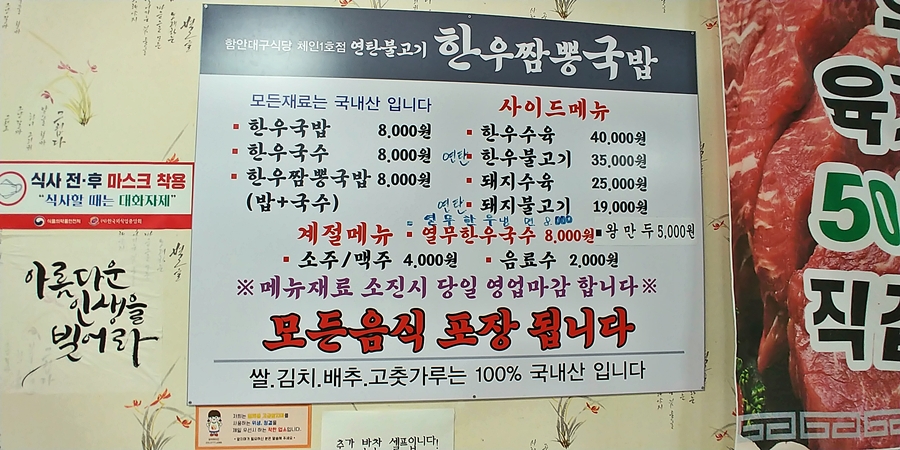 함안대구식당 체인1호점 연탄불고기 한우짬뽕국밥
모든재료는 국내산 입니다
한우국밥 8,000원
한우국수 8,000원
한우짬뽕국밥 8,000원
(밥+국수)
사이드메뉴
한우수육 40,000원
연탄 한우불고기 35,000원
돼지수육 25,000원
연탄 돼지불고기 19,000원
열무한우냉면 8,000
계절메뉴 열무한우국수 8,000원
왕만두 5,000원
소주/맥주 4,000원 음료수 2,000원
※메뉴재료 소진시 당일 영업마감 합니다※
모든음식 포장 됩니다
쌀.김치.배추.고춧가루는 100% 국내산 입니다
식사 전·후 마스크 착용
"식사할 때는 대화자제"
식품의약품안전처 한국외식업중앙회
아름다운
인생을
빌어라
추가 반찬 셀프입니다!
육
50
직